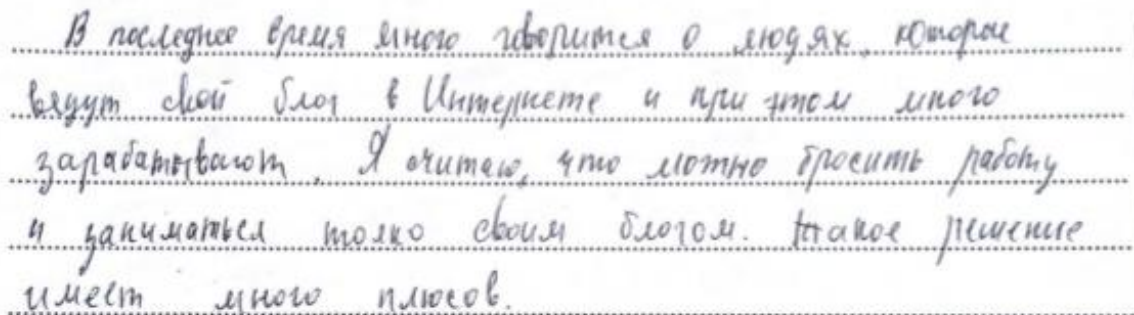 В последнее время много говорится о людях, которые
ведут свой блог в Интернете и при этом много
зарабатывают. Я считаю, что можно бросить работу
и заниматься толко своим блогом. Такое решение
имеет много плюсов.